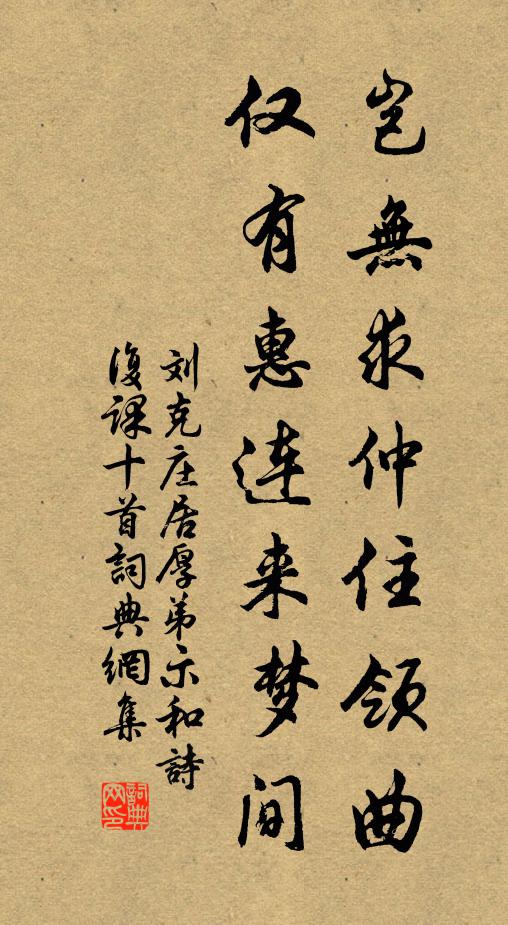 岂無求仲住领曲
仅有惠连来梦间
刘克庄居厚弟示和詩
復课十首詞典網集
詞典网印